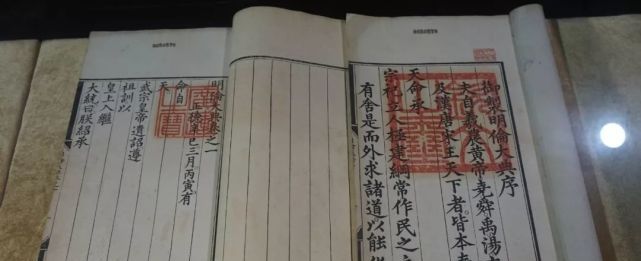 御製明倫大典序
夫自羲農黃帝堯舜禹湯
及漢唐宋王天下者皆本
天命承
宗祀立人極建綱常作民之
有舍是而外求諸道以能
明倫大典卷之一
正德辛巳三月丙寅有
命自
天
武宗皇帝遺詔遵
祖訓以
皇上入繼
大統曰朕紹承